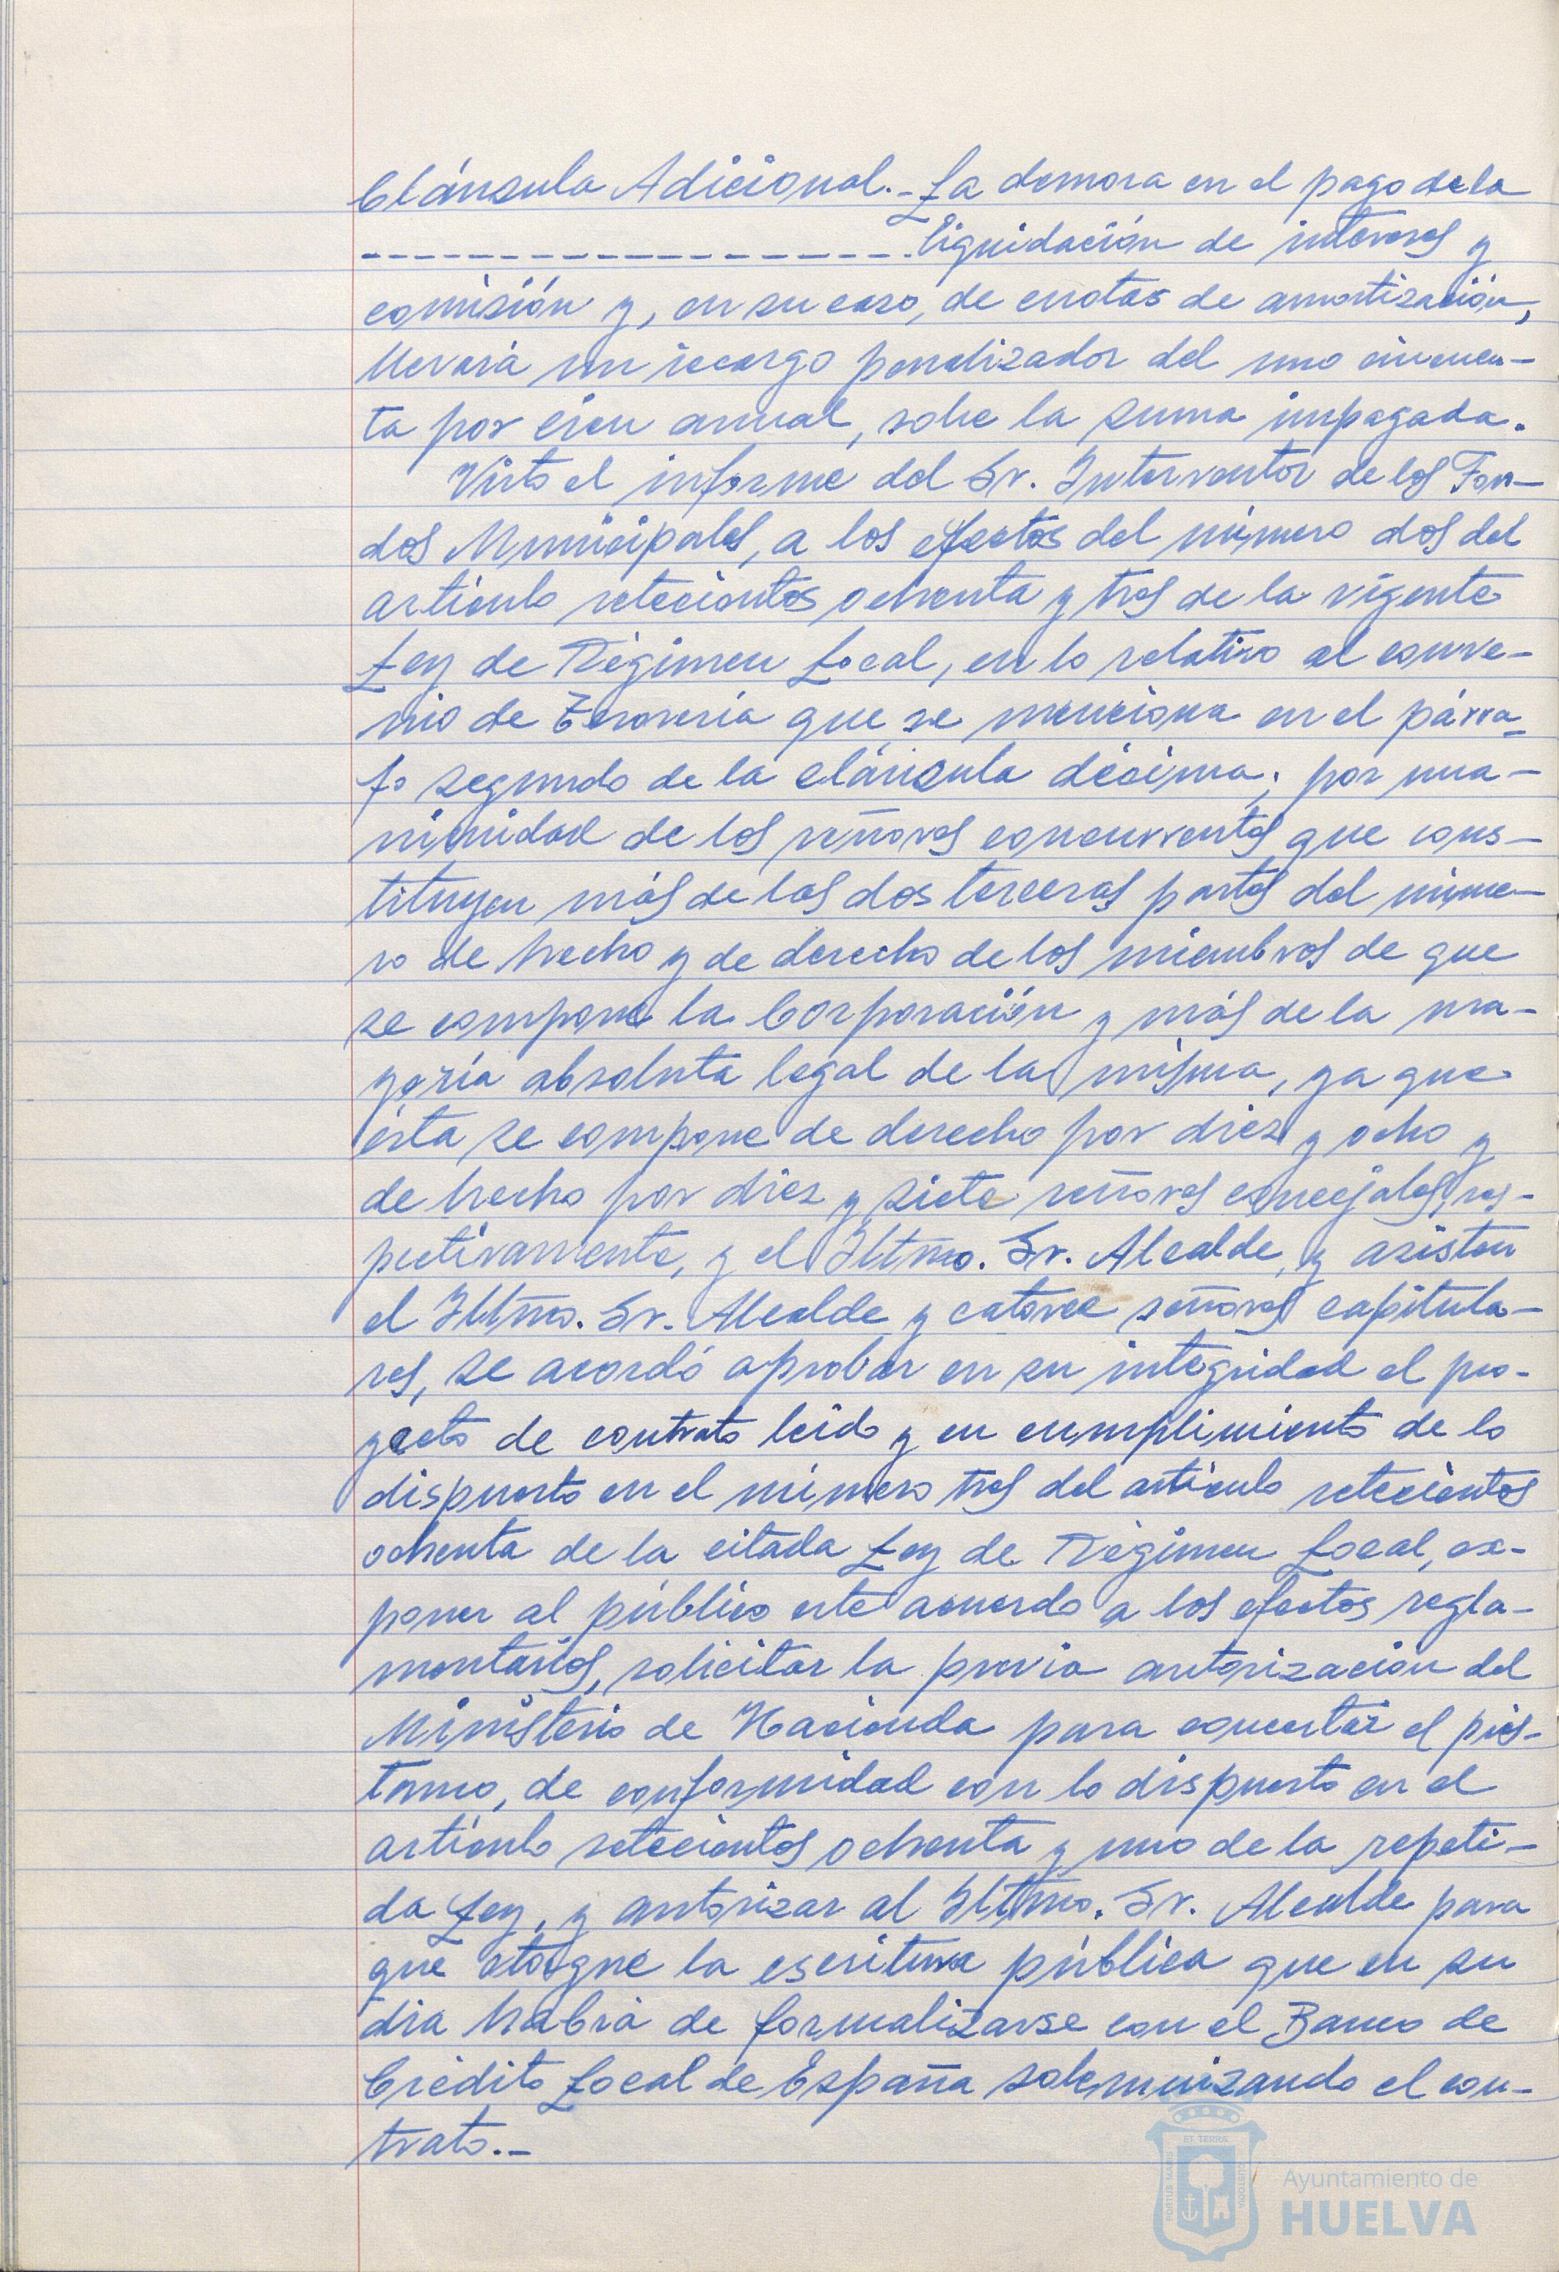 Cláusula Adicional.- La demora en el pago de la
------------------- liquidación de intereses y
comisión y, en su caso, de cuotas de amortización,
llevará un recargo penalizador del uno cincuen-
ta por cien anual, sobre la suma impagada.
Visto el informe del Sr. Interventor de los Fon-
dos Municipales, a los efectos del número dos del
artículo setecientos ochenta y tres de la vigente
Ley de Régimen Local, en lo relativo al conve-
nio de Tesorería que se menciona en el párra-
fo segundo de la cláusula décima; por una-
nimidad de los señores concurrentes que cons-
tituyen más de las dos terceras partes del núme-
ro de hecho y de derecho de los miembros de que
se compone la Corporación y más de la ma-
yoría absoluta legal de la misma, ya que
ésta se compone de derecho por diez y ocho y
de hecho por diez y siete señores concejales, res-
pectivamente, y el Iltmo. Sr. Alcalde, y asisten
el Iltmo. Sr. Alcalde y catorce señores capitula-
res, se acordó aprobar en su integridad el pro-
yecto de contrato leído y en cumplimiento de lo
dispuesto en el número tres del artículo setecientos
ochenta de la citada Ley de Régimen Local, ex-
poner al público este acuerdo a los efectos regla-
mentarios, solicitar la previa autorización del
Ministerio de Hacienda para concertar el prés-
tamo, de conformidad con lo dispuesto en el
artículo setecientos ochenta y uno de la repeti-
da Ley, y autorizar al Iltmo. Sr. Alcalde para
que otorgue la escritura pública que en su
día habrá de formalizarse con el Banco de
Crédito Local de España solemnizando el con-
trato.-
PORTUS MARIS ET TERRAE CUSTODIA
Ayuntamiento de
HUELVA